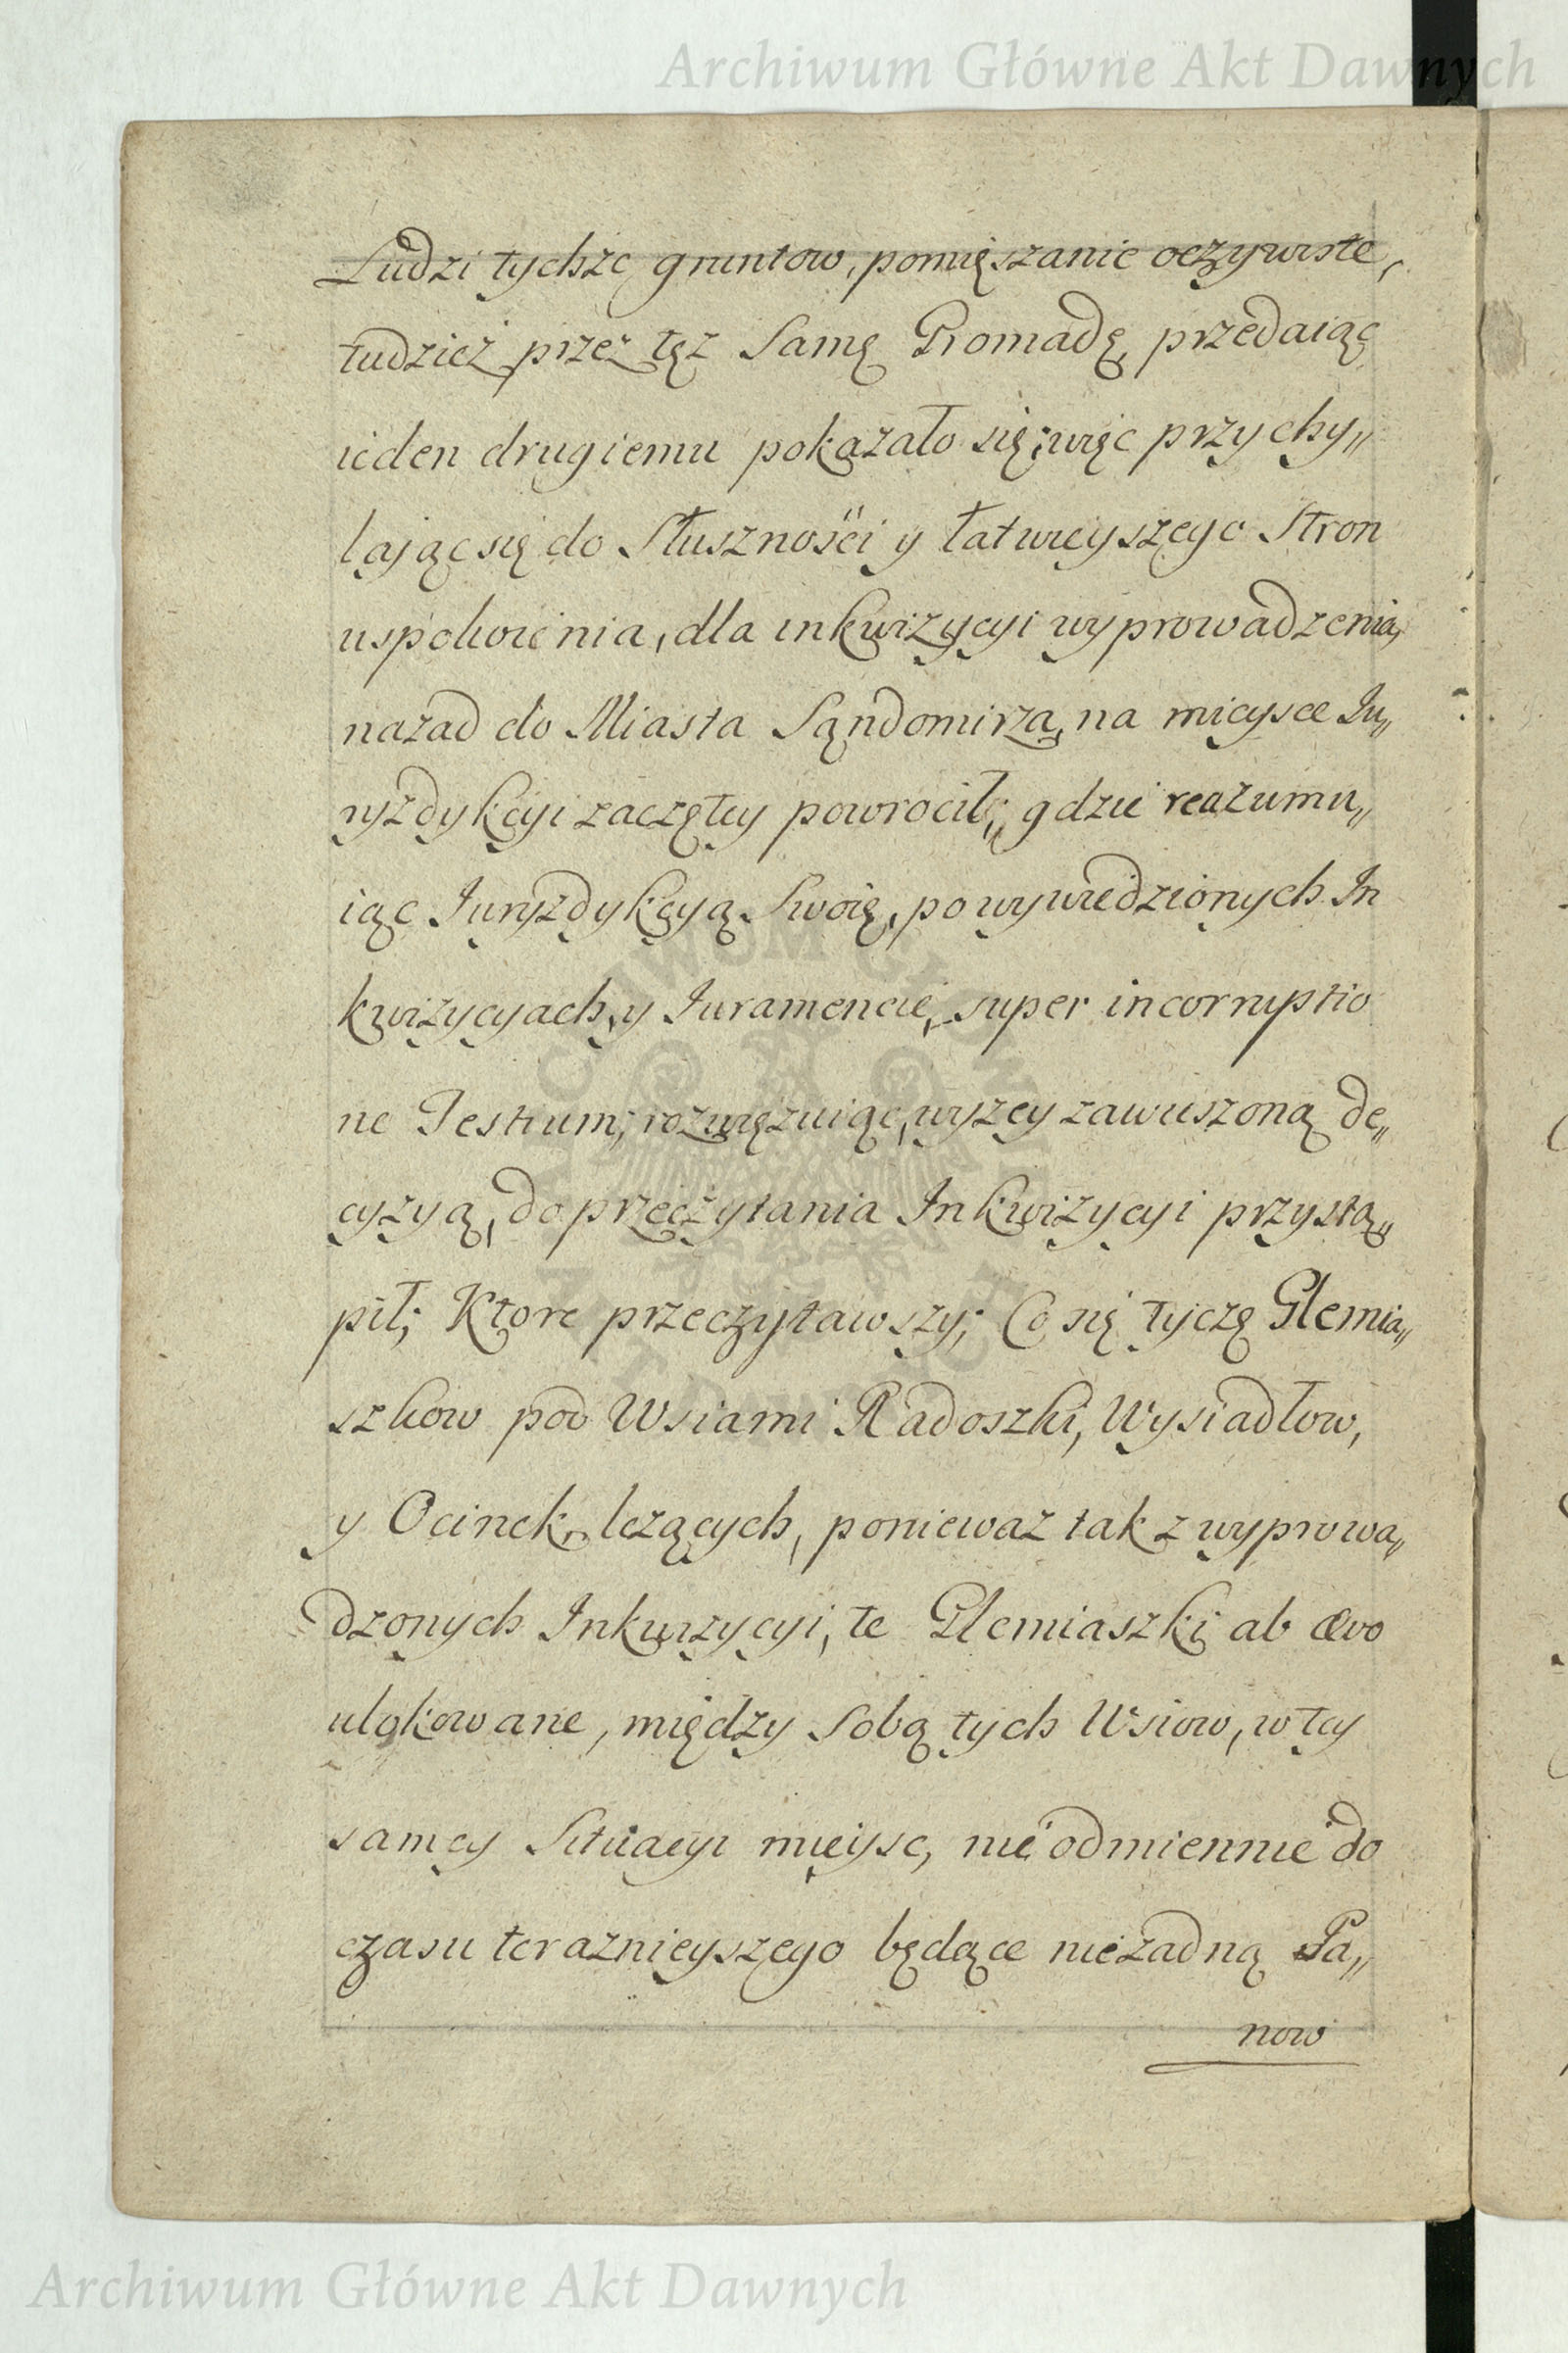 Archiwum Główne Akt Dawnych
Ludzi tychże gruntow, pomięszanie oczywiste,
tudzież przez tęż Samę Gromadę, przedaiąc
ieden drugiemu pokazało się; więc przychy„
lając się do Słuszności y łatwieyszego Stron
uspokoienia, dla inkwizycyi wyprowadzenia,
nazad do Miasta Sandomirza, na mieysce Iu„
ryzdykcyi zaczętey powrocił; gdzie reazumu„
iąc Iuryzdykcyą Swoię, po wywiedzionych In
kwizycyach, y Iuramencie, super incorruptio
ne Testium; rozwięzuiąc, wyzey zawieszoną de„
cyzyą, do przeczytania Inkwizycyi przystą„
pił; Ktore przeczytawszy; Co się tyczę Glemia„
szkow pod Wsiami Radoszki, Wysiadłow,
y Ocinek, leżących, ponieważ tak z wyprowa„
dzonych Inkwizycyi, te Glemiaszki ab ævo
ulokowane, między Sobą tych Wsiow, w tey
samey Situacyi mieysc, nieodmiennie do
czasu teraznieyszego będące nieżadną Pa„
now
Archiwum Główne Akt Dawnych